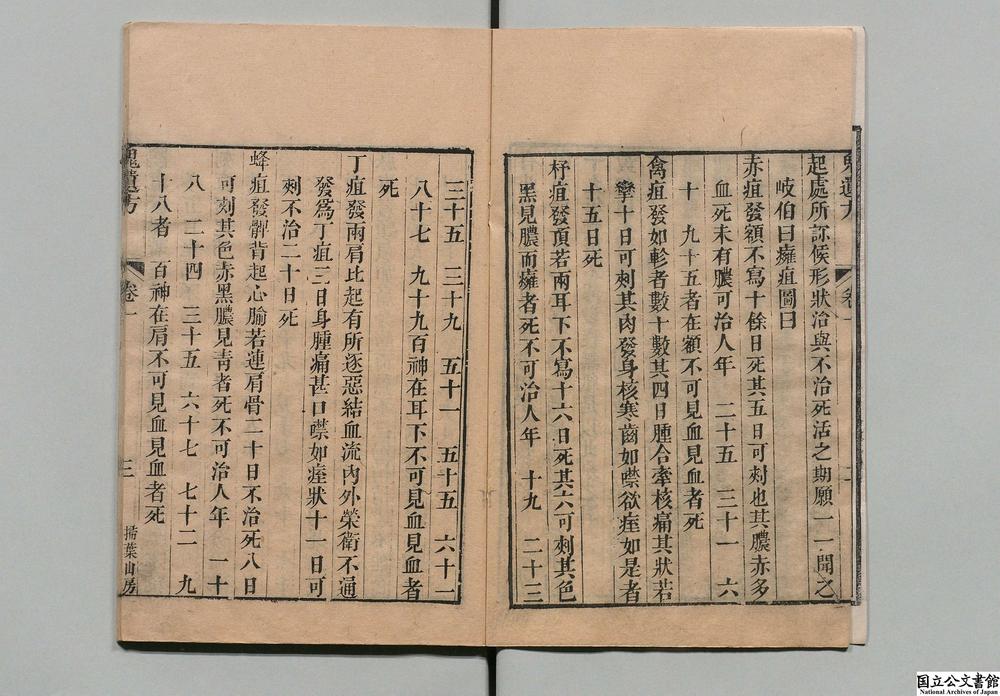 鬼遺方
卷一
二
起處所訢候形狀治與不治死活之期願一一聞之
岐伯曰癰疽圖曰
赤疽發額不寫十餘日死其五日可刾也其膿赤多
血死未有膿可治人年 二十五 三十一 六
十 九十五者在額不可見血見血者死
禽疽發如軫者數十數其四日腫合牽核痛其狀若
攣十日可刾其肉發身核寒齒如噤欲痓如是者
十五日死
杼疽發頂若兩耳下不寫十六日死其六可刾其色
黑見膿而癰者死不可治人年 十九 二十三
三十五 三十九 五十一 五十五 六十一
八十七 九十九百神在耳下不可見血見血者
死
丁疽發兩肩比起有所逐惡結血流內外榮衛不通
發爲丁疽三日身腫痛甚口噤如痓狀十一日可
刾不治二十日死
蜂疽發髀背起心腧若連肩骨二十日不治死八日
可刾其色赤黑膿見靑者死不可治人年 一十
八 二十四 三十五 六十七 七十二 九
十八者 百神在肩不可見血見血者死
鬼遺方
卷一
三
掃葉山房
国立公文書館
National Archives of Japan